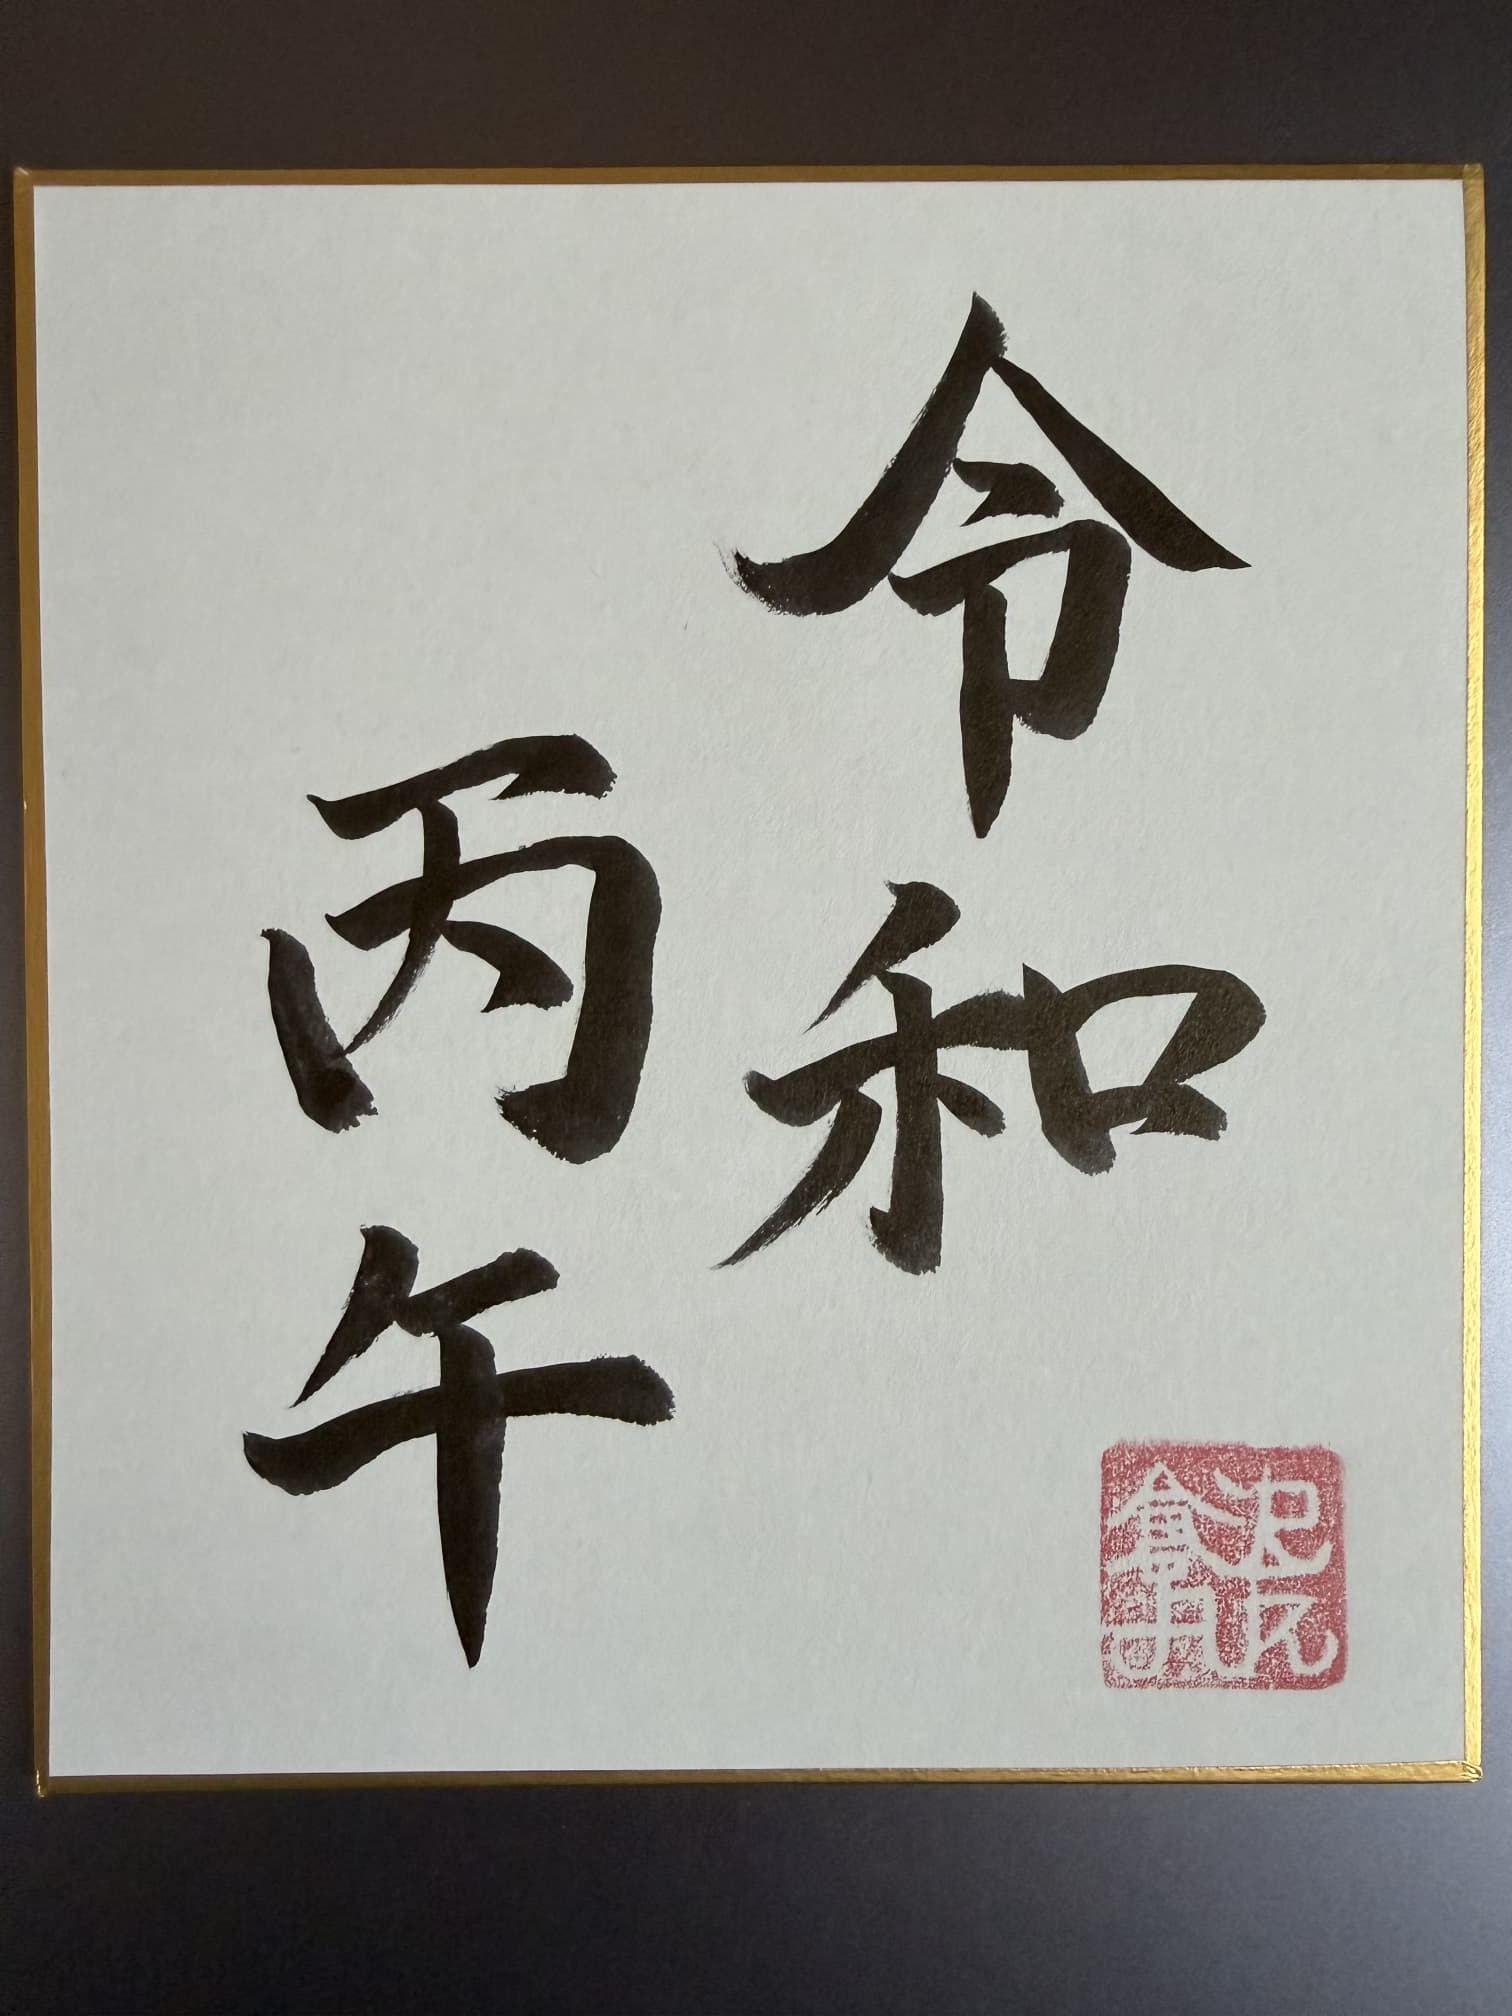 令和
丙午